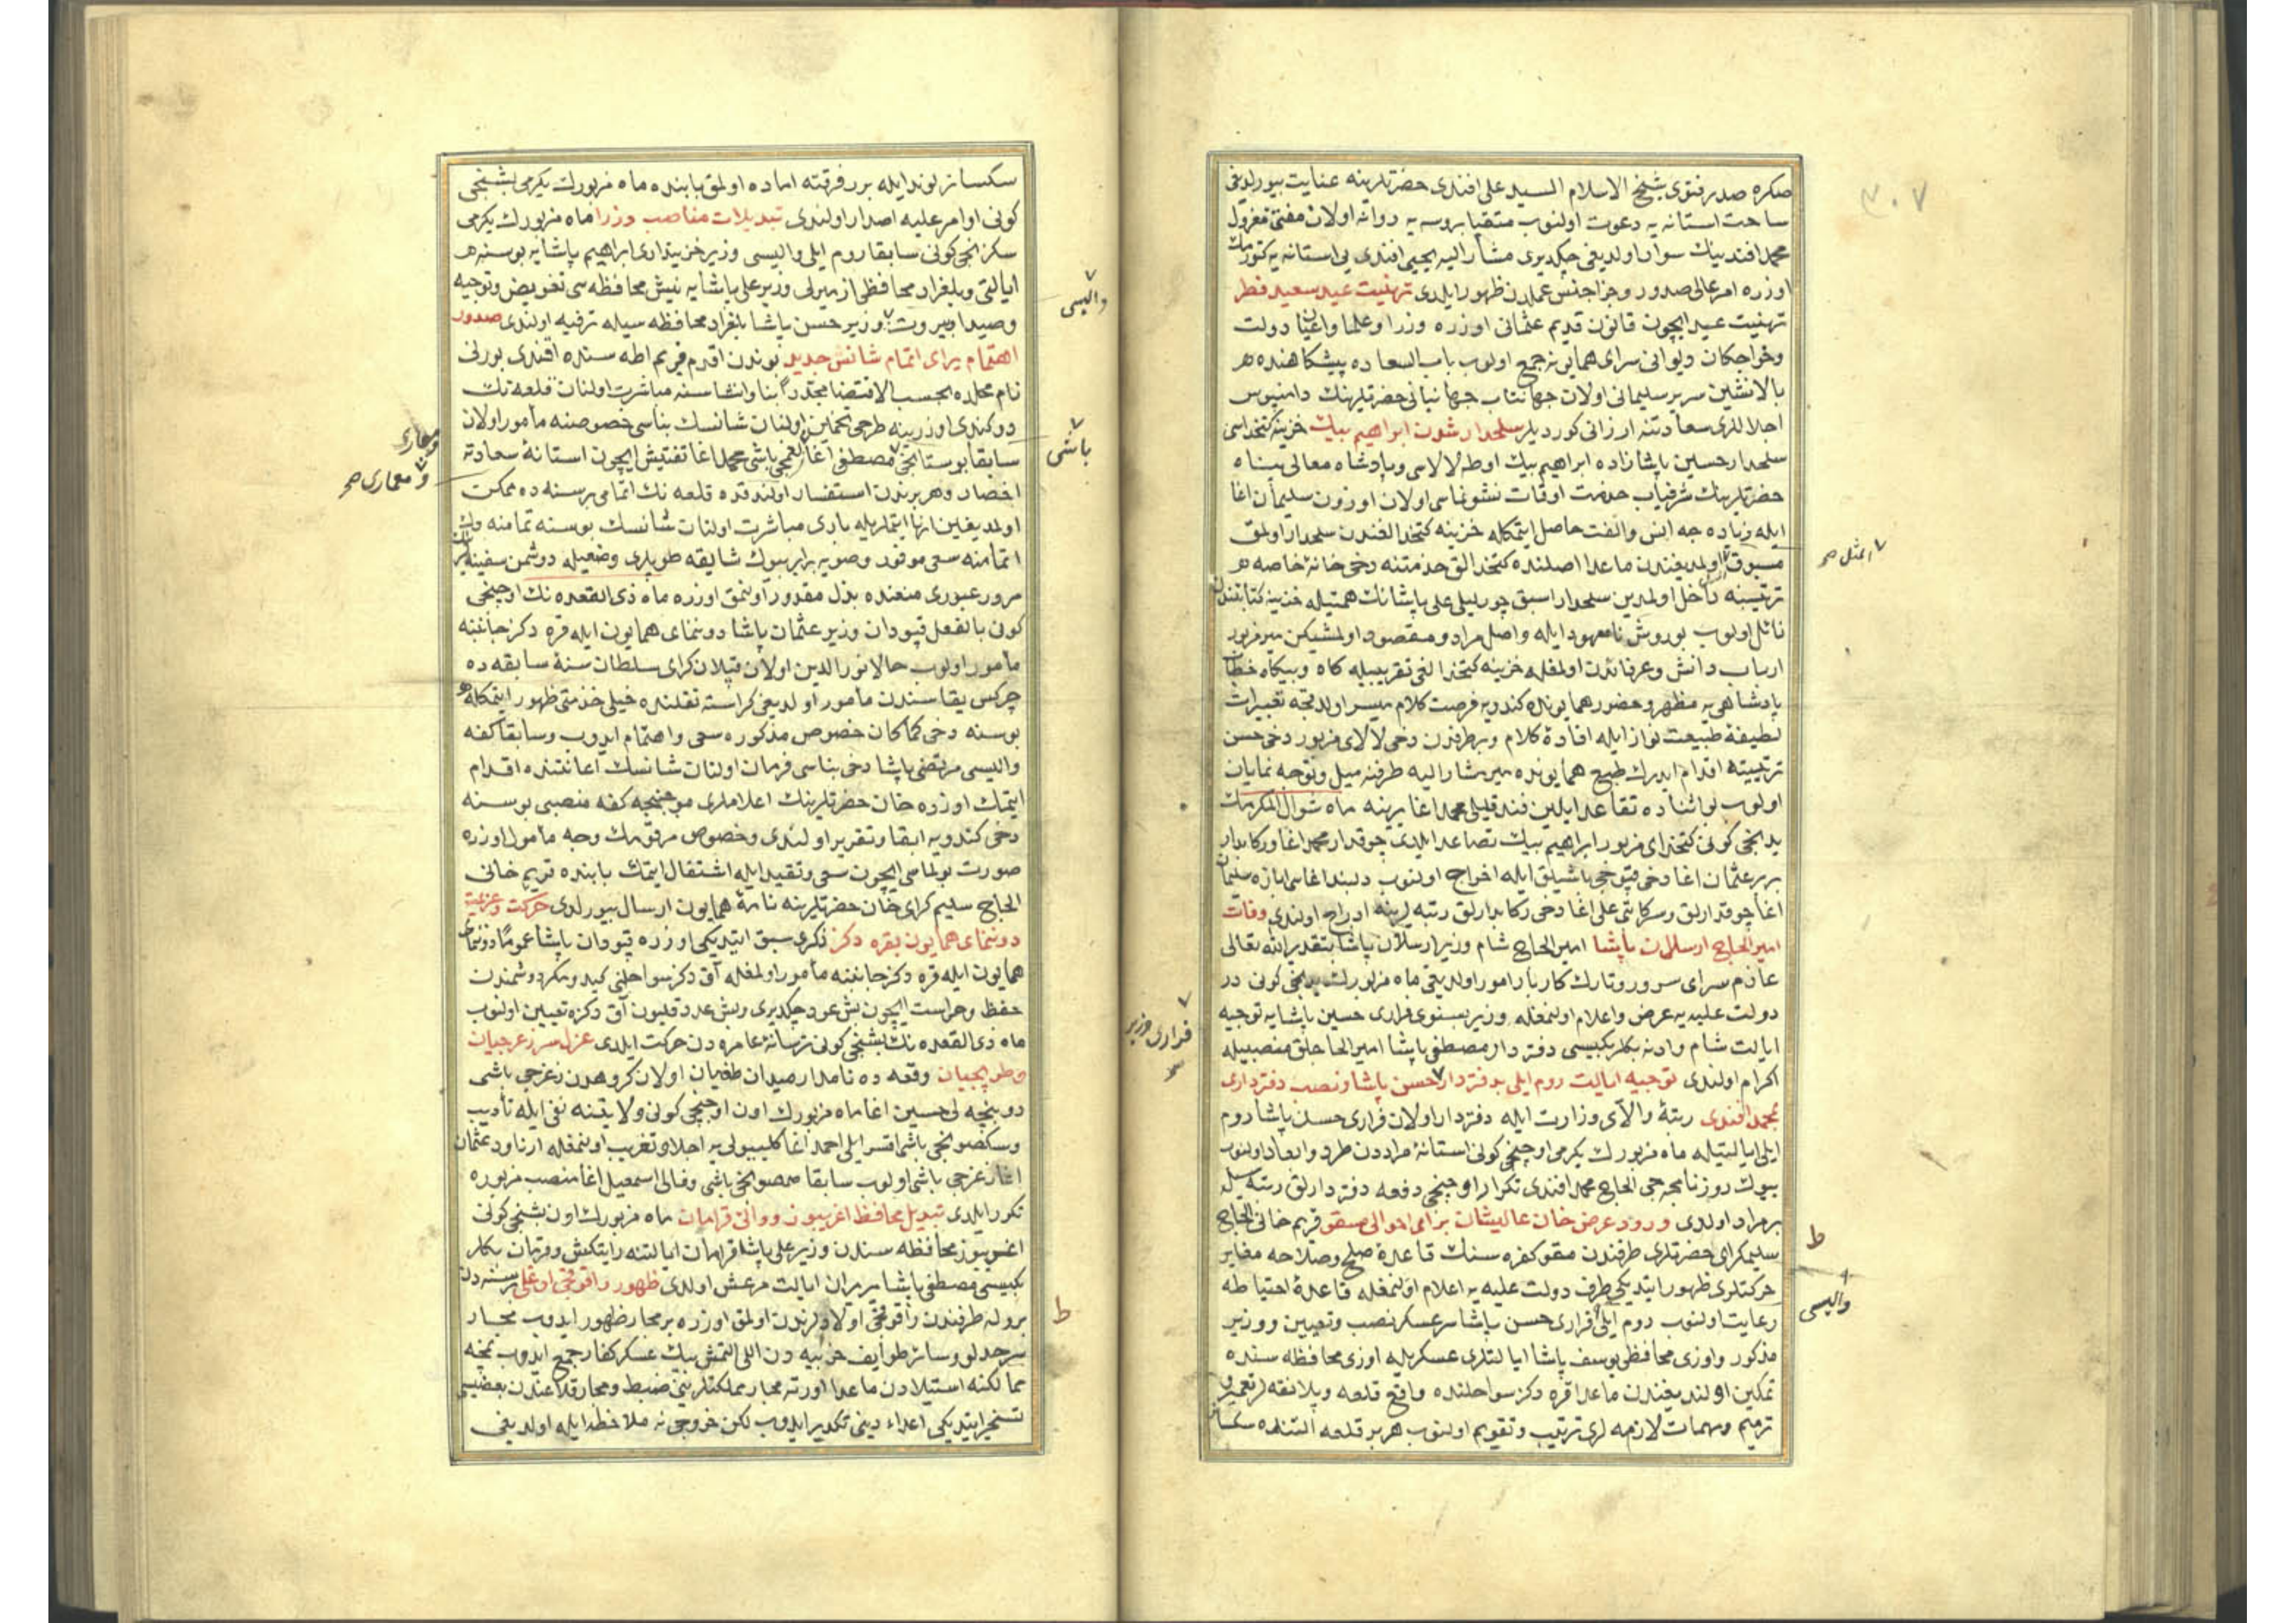 ٣٠٧
صكره صدر فتوى شيخ الاسلام السيد على افندى حضرتلرينه عنايت بيورلديغى
ساحت استانه يه دعوت اولنوب متقيا بروسه يه روانه اولان مفتئ معزول
محمد افندينك سوار اولديغى چكديرى مشار اليه يحيى افندى يى استانه يه كتورمك
اوزره امر عالى صدور وجزا جنس عملدن ظهور ايلدى تهنيت عيد سعيد فطر
تهنيت عيد ايچون قانون قديم عثمانى اوزره وزرا وعلما واعيان دولت
وخواجكان ديوانى سراى همايونه جمع اولوب باب السعاده پيشكاهنده هر
بالانشين سرير سليمانى اولان جهانتاب جهانبانى حضرتلرينك دامنبوس
اجلاللرى سعادتنه ارزانى كورديلر سلحدار شدن ابراهيم بيك خزينه كتخداسى
سلحدار حسين پاشازاده ابراهيم بيك اوطه لالاسى وپادشاه معالى پناه
حضرتلرينك شرفياب خدمت اوقات نشو نماسى اولان اوزون سليمان اغا
ايله زياده جه انس والفت حاصل ايتمكله خزينه كتخدالغندن سلحدار اولمق
مسبوق اولمديغندن ماعدا اصلنده كتخدالق خدمتنه دخى خانهٔ خاصه
ترتيبنه داخل اولمدين سلحدار اسبق چورليلى على پاشانك همتيله خزينه كتابتندن
نائل اولوب بو روش نامعهود ايله واصل مراد ومقصود اولمشيكن مير مزبور
ارباب دانش وعرفاندن اولمغله خزينه كتخدالغى تقريبيله كاه وبيكاه خطاب
پادشاهى يه مظهر وحضور همايونده كندويه فرصت كلام ميسر اولدقجه تعبيرات
لطيفهٔ طبيعت نواز ايله افادهٔ كلام وبر طرفدن دخى لالاى مزبور دخى حسن
ترتيبنه اقدام ايدرك طبع همايونده مير مشار اليه طرفنه ميل وتوجه نمايان
اولوب بو اثناده تقاعد ايلين فندقليلى محمد اغا يرينه ماه شوال المكرمك
يدنجى كونى كتخداى مزبور ابراهيم بيك تصاعد ايلدى چوقدار محمد اغا وركابدار
بربر عثمان اغا دخى قپوجى باشيلق ايله اخراج اولنوب دلبند اغاسى ابازه سليمان
اغا چوقدارلق وسركاتبى على اغا دخى ركابدارلق رتبه لرينه ادراج اولندى وفات
امير الحاج ارسلان پاشا امير الحاج شام وزير ارسلان پاشا بتقدير الله تعالى
عازم سراى سرور وتارك كاربار امور اولديغى ماه مزبورك يدنجى كونى در
دولت عليه يه عرض واعلام اولنمغله وزير بستوى فرارى حسين پاشايه توجيه
ايالت شام وادنه بكلربكيسى دفتردار مصطفى پاشا امير الحاجلق منصبيله
اكرام اولندى توجيه ايالت روم ايلى به دفتردار حسن پاشا ونصب دفتردارى
محمد افندى رتبهٔ والاى وزارت ايله دفتردار اولان فرارى حسن پاشا روم
ايلى ايالتيله ماه مزبورك يكرمى اوچنجى كونى استانهٔ مراددن طرد وابعاد اولنوب
بيوك روزنامجه جى الحاج محمد افندى تكرار اوچنجى دفعه دفتردارلق رتبه سيله
برمراد اولدى ورود عرض خان عاليشان براى احوالى مسقو قريم خانى الحاج
سليمكراى حضرتلرى طرفندن مسقو كفره سنك قاعدهٔ صلح وصلاحه مغاير
حركتلرى ظهور ايتديكى طرف دولت عليه يه اعلام اولنمغله قاعدهٔ احتياطه
رعايت اولنوب روم ايلى فرارى حسن پاشا سرعسكر نصب وتعيين ووزير
مذكور واوزى محافظى يوسف پاشا ايالتلرى عسكريله اوزى محافظه سنده
تمكين اولنديغندن ماعدا قره دكز سواحلنده واقع قلعه وپلانقه لر تعمير و
ترميم ومهمات لازمه لرى ترتيب وتقويم اولنوب هر بر قلعه التنده سكسان
؇ امثل صح
واليسى
ط
فرارى وزير
صح
سكسانر لوند ايله برر فرقته اماده اولمق بابنده ماه مزبورك يكرمى بشنجى
كونى اوامر عليه اصدار اولندى تبديلات مناصب وزرا ماه مزبورك يكرمى
سكزنجى كونى سابقا روم ايلى واليسى وزير خزينه دارى ابراهيم پاشايه بوسنه
ايالتى وبلغراد محافظى ازميرلى وزير على پاشايه نيش محافظه سى تفويض وتوجيه
وصيدا وبيروت وزير حسن پاشا بلغراد محافظه سيله ترفيه اولندى صدور
اهتمام براى اتمام شانس جديد بوندن اقدم قريم اطه سنده افندى بورنى
نام محلده بحسب الاقتضا مجددا بنا وانشاسنه مباشرت اولنان قلعه نك
دوكندى اوزرينه طرحى تخمين اولنان شانسك بناسى خصوصنه مأمور اولان
سابقا بوستانجى مصطفى اغا لغمجى باشى محمد اغا تفتيش ايچون استانهٔ سعادته
احضار وهر برندن استفسار اولندقده قلعه نك اتمامى بر سنه ده ممكن
اولمديغين انها ايتملريله بادى مباشرت اولنان شانسك بو سنه تمامنه
اتمامنه سعى موفور وصويه برابر بيوك شايقه طوپلرى وضعيله دوشمن سفينه لرينك
مرور عبورى منعنده بذل مقدور اولنمق اوزره ماه ذى القعده نك اوچنجى
كونى بالفعل قپودان وزير عثمان پاشا دونماى همايون ايله قره دكز جانبنه
مأمور اولوب حالا نورالدين اولان قپلان كراى سلطان سنهٔ سابقه ده
چركس يقاسندن مأمور اولديغى كراسته نقلنده خيلى خدمتى ظهور ايتمكله
بو سنه دخى كماكان خصوص مذكوره سعى واهتمام ايدوب وسابقا كفه
واليسى مرتضى پاشا دخى بناسى فرمان اولنان شانسك اعانتنده اقدام
ايتمك اوزره خان حضرتلرينك اعلاملرى موجبنجه كفه منصبى بو سنه
دخى كندويه ابقا وتقرير اولندى وخصوص مرقومك وجه مأمول اوزره
صورت بولماسى ايچون سعى وتقيد ايله اشتغال ايتمك بابنده قريم خانى
الحاج سليم كراى خان حضرتلرينه نامهٔ همايون ارسال بيورلدى حركت وعزيمت
دونماى همايون بقره دكز ذكرى سبق ايتديكى اوزره قپودان پاشا عموما دونماى
همايون ايله قره دكز جانبنه مأمور اولمغله آق دكز سواحلنى كيد ومكر دوشمندن
حفظ وحراست ايچون بش عدد چكديرى وبش عدد قليون آق دكزه تعيين اولنوب
ماه ذى القعده نك بشنجى كونى ترسانهٔ عامره دن حركت ايلدى عزل سرزغرجيان
وطوپجيان وقعه ده نامدار ميدان طغيان اولان كروهدن زغرجى باشى
دوبنجه لى حسين اغا ماه مزبورك اون اوچنجى كونى ولايتنه نفى ايله تأديب
وسكصونجى باشى اقسرايلى احمد اغا كليبولى يه اجلا وتغريب اولنمغله ارناود عثمان
اغا زغرجى باشى اولوب سابقا صمصونجى باشى وفالى اسمعيل اغا منصب مزبوره
تكرر ايلدى تبديل محافظ اغريبوز ووالئ قرامان ماه مزبورك اون بشنجى كونى
اغريبوز محافظه سندن وزير على پاشا قرامان ايالتنه رايتكش وقرمان بكلر
بكيسى مصطفى پاشا ميرميران ايالت مرعش اولدى ظهور راقوقجى اوغلى بر سنه دن
برو له طرفندن راقوقجى اولادلرندن اولمق اوزره بر مجار ظهور ايدوب مجار
سرحدلو وسائر طوايف خزبيه دن اللى التمش بيك عسكر كفار جمع ايدوب نمچه
ممالكنه استيلادن ماعدا اورته مجار مملكتلرينى ضبط ومجار قلاعندن بعضيسى
تسخير ايتديكى اعداء دينى تكدير ايدوب لكن خروجى نه ملاحظه ايله اولديغى
واليسى
باشى
ومعمارى
؇ ومعمارى صح
ط